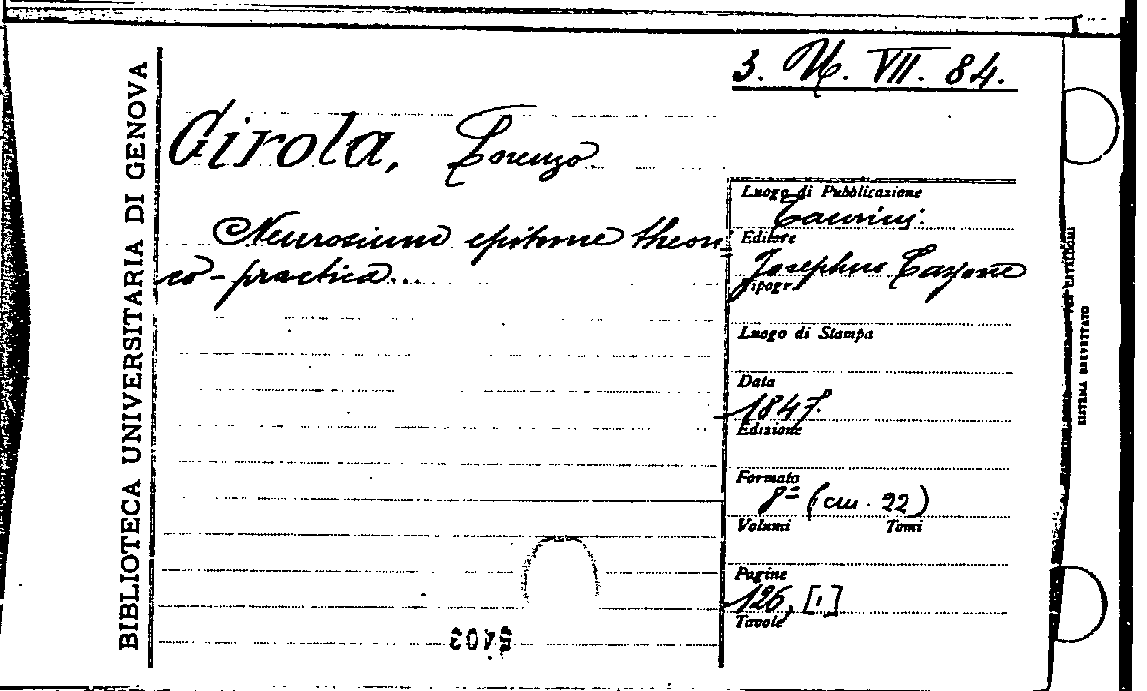 3. U. VII. 84.
BIBLIOTECA UNIVERSITARIA DI GENOVA
Girola, Lorenzo
Neurosium epitome theori=
co-practica...
Luogo di Pubblicazione
Taurini:
Editore
Josephus Cassone
Tipogr.
Luogo di Stampa
Data
1847.
Edizione
Formato
8º (cm. 22)
Volumi Tomi
Pagine
126, [1]
Tavole
SISTEMA BREVETTATO